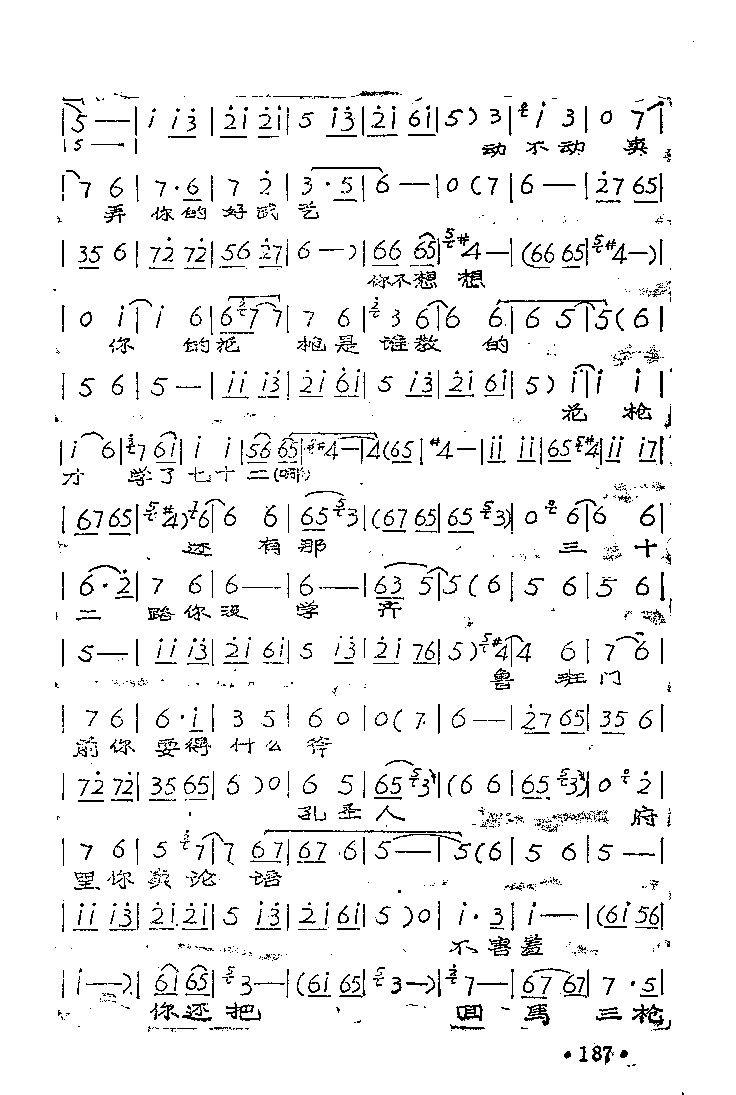 |5 —|i i3|2i 2i|5 i3|2i 6i|5) 3|i 3|0 7|
|5 —|
动不动 卖
|7 6|7·6|7 2|3·5|6 —|0 (7|6 —|27 65|
弄 你的好武艺
|35 6|72 72|56 27|6 —)|66 65|#4 —|(66 65|#4 —)|
你不想 想
|0 i|i 6|6 7 7|7 6|3 6|6 6|6 5|5 (6|
你 的花 枪是谁教 的
|5 6|5 —|ii i3|2i 6i|5 i3|2i 6i|5) i|i i|
花 枪
|i 6|7 6i|i i|56 65|#4 —|4 (65|#4 —|ii ii|65 #4|ii i7|
才 学了七十二(哪)
|67 65|#4) 6|6 6|65 3|(67 65|65 3)|0 6|6 6|
还 有那 三 十
|6·2|7 6|6 —|6 —|63 5|5 (6|5 6|5 6|
二 路你没 学 齐
|5 —|ii i3|2i 6i|5 i3|2i 76|5) #4|4 6|7 6|
鲁 班门
|7 6|6·i|3 5|6 0|0 (7|6 —|27 65|35 6|
前你 耍得 什么 斧
|72 72|35 65|6 )0|6 5|65 3|(6 6|65 3)|0 2|
孔圣人 府
|7 6|5 7|7 67|67 6|5 —|5 (6|5 6|5 —|
里你卖论 语
|ii i3|2i 2i|5 i3|2i 6i|5 )0|i·3|i —|(6i 56|
不害羞
|i —)|6i 65|3 —|(6i 65|3 —)|7 —|67 67|7·5|
你还把 回 马 三枪
•187•